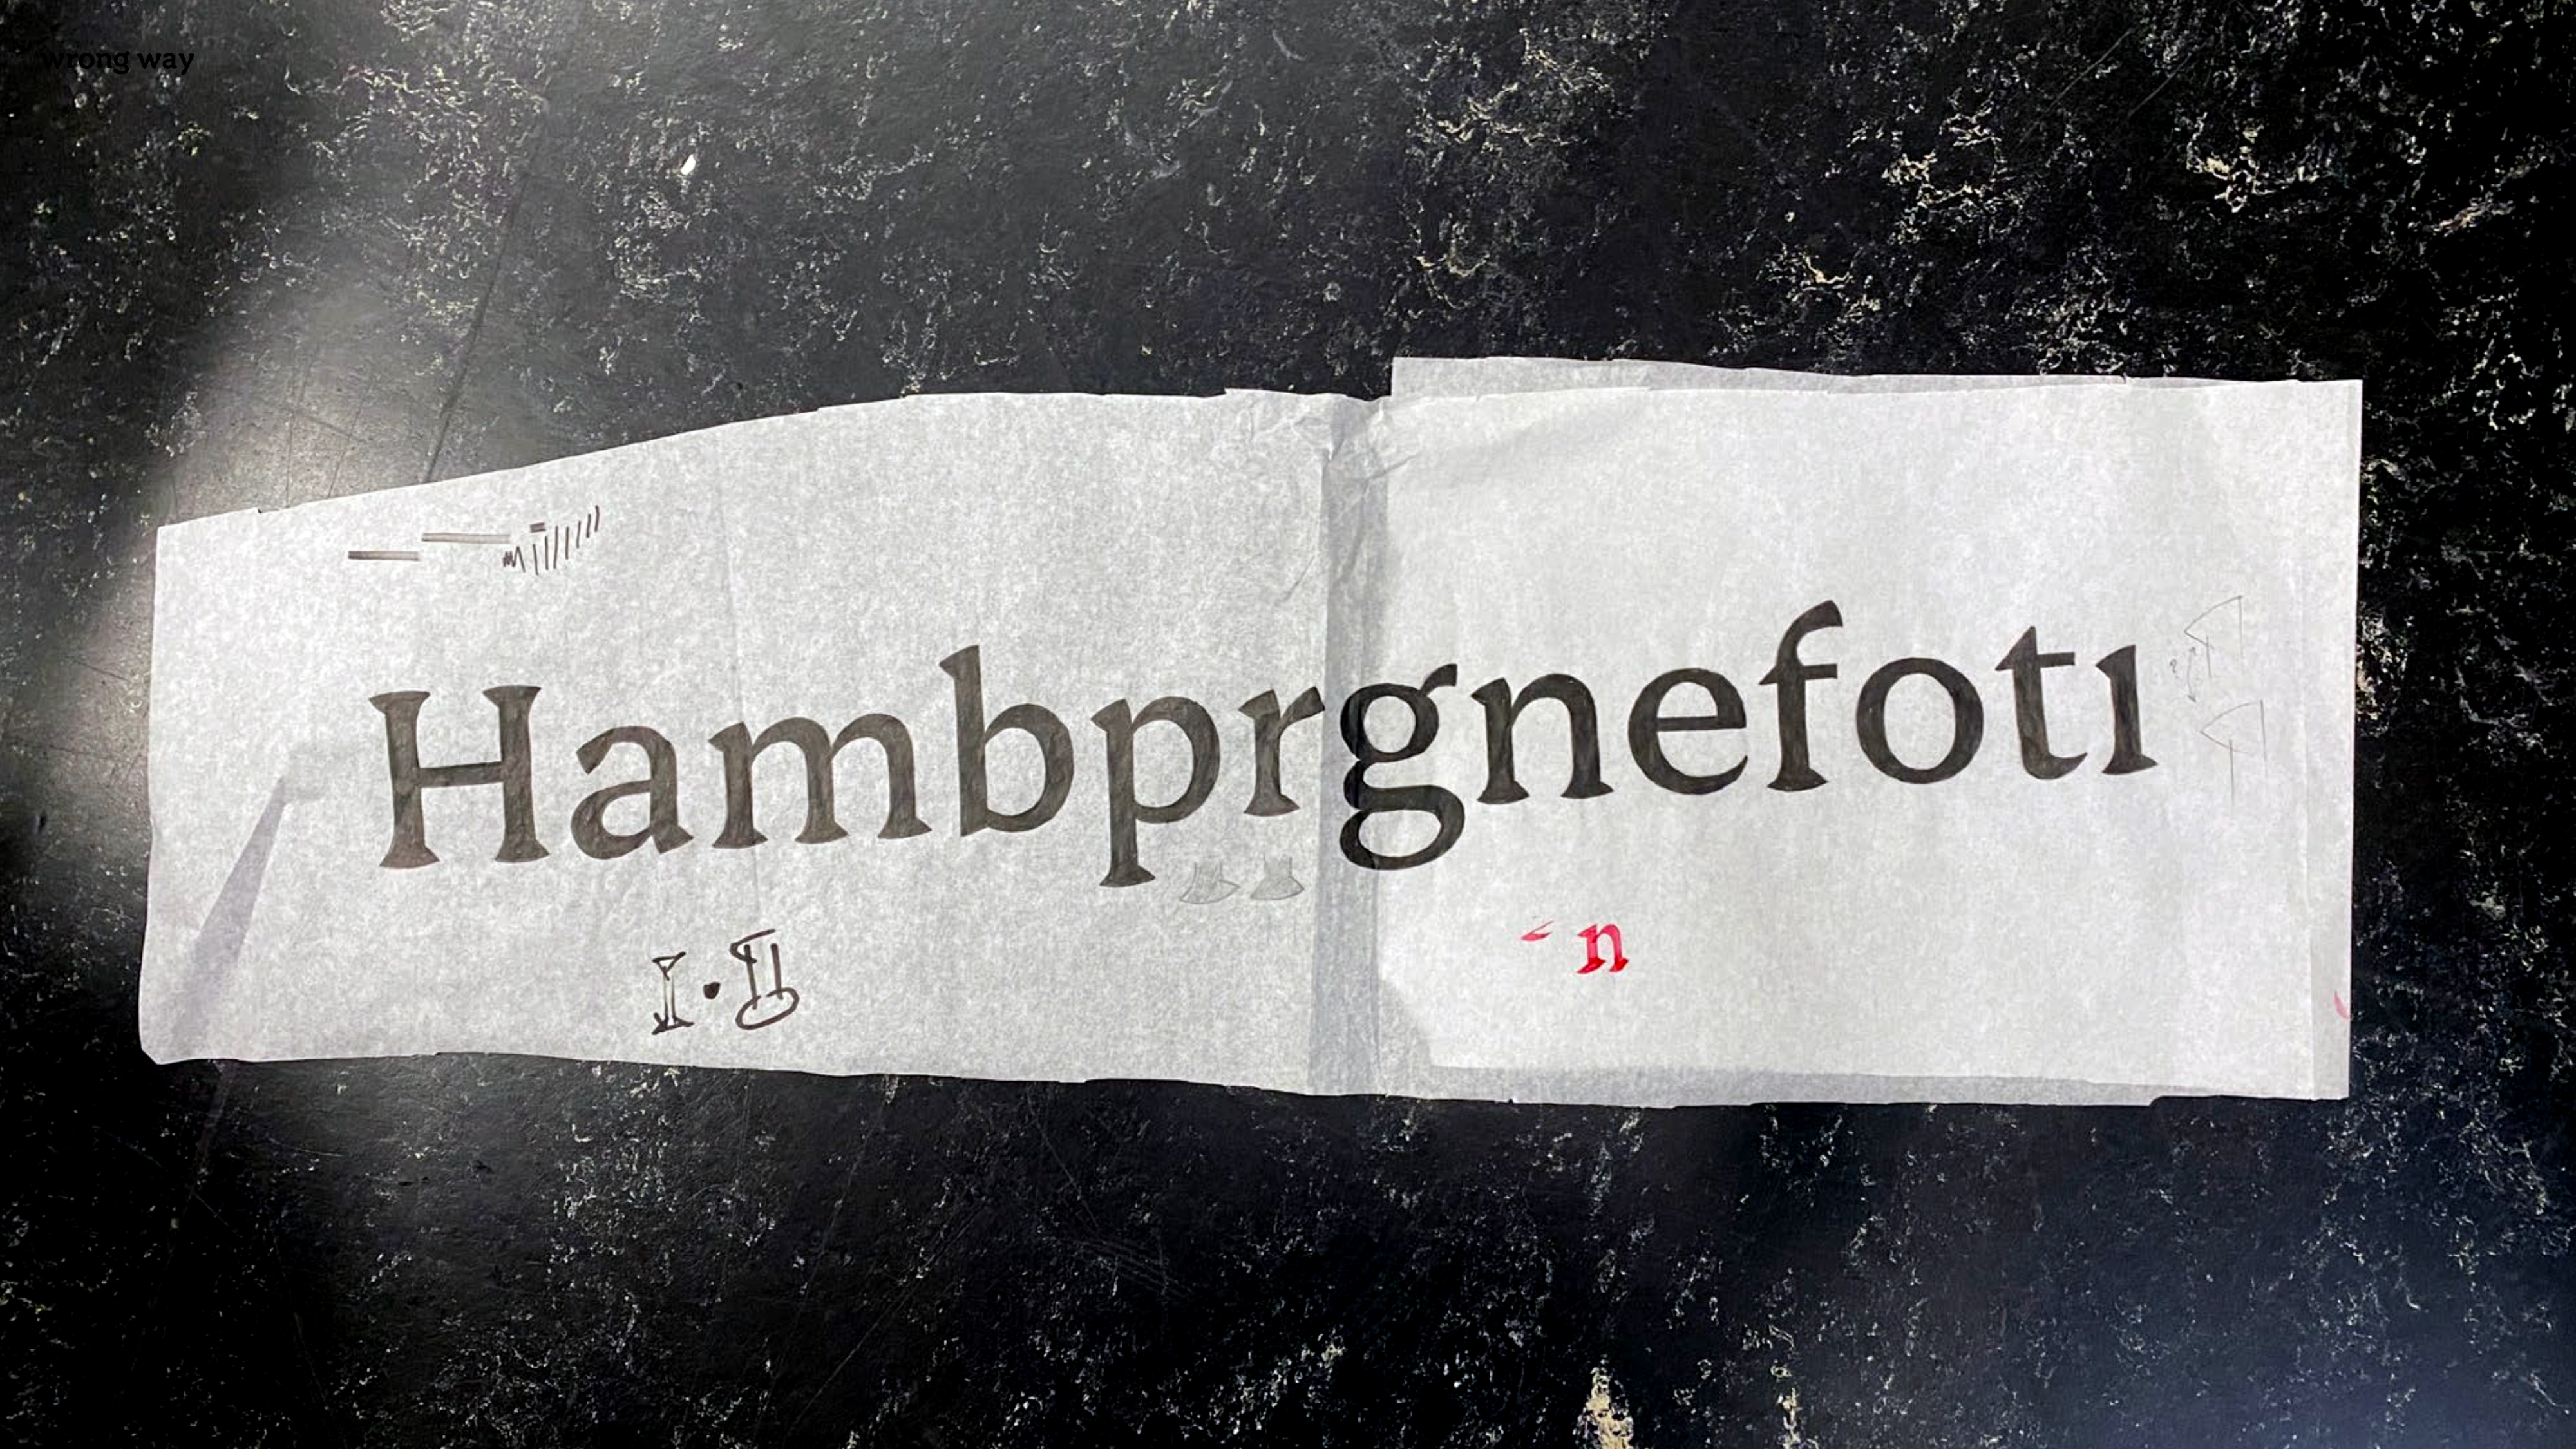 wrong way
Hambprgnefotı
n